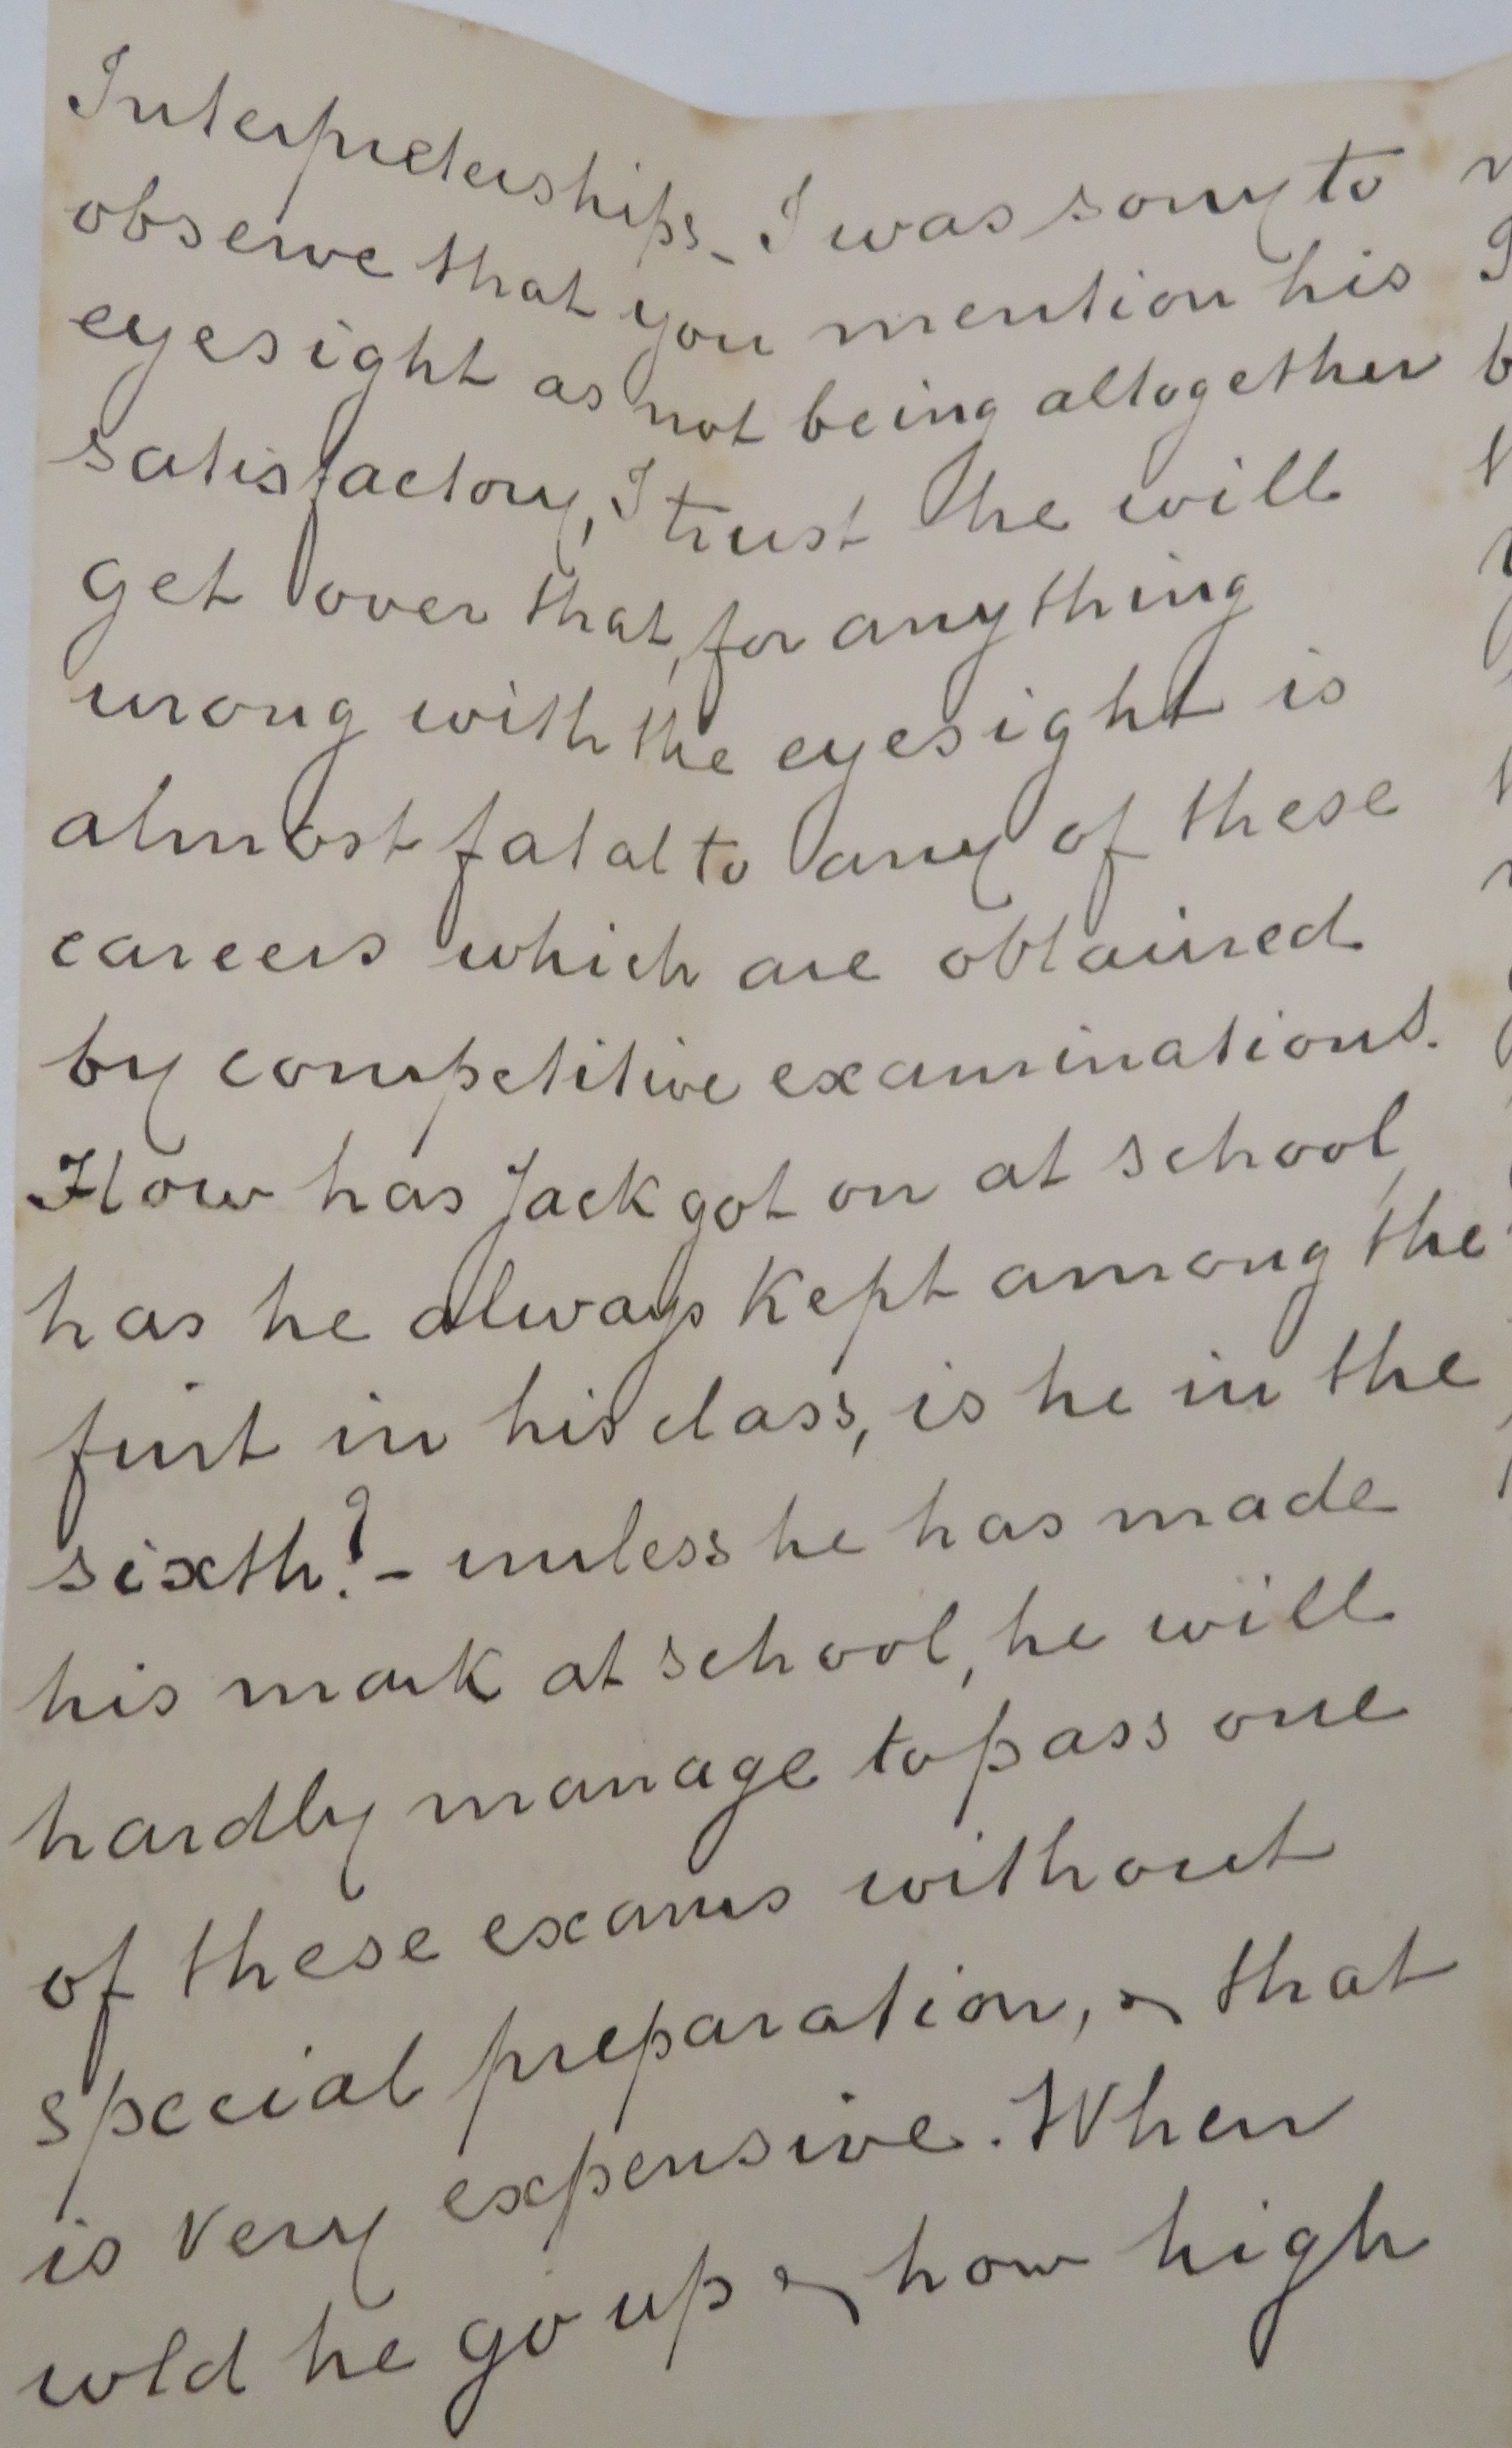 Interpreterships - I was sorry to
observe that you mention his
eyesight as not being altogether
satisfactory, I trust he will
get over that, for anything
wrong with the eyesight is
almost fatal to any of these
careers which are obtained
by competitive examinations.
How has Jack got on at school,
has he always kept among the
first in his class, is he in the
sixth? - unless he has made
his mark at school, he will
hardly manage to pass one
of these exams without
special preparation, & that
is very expensive. When
wld he go up & how high